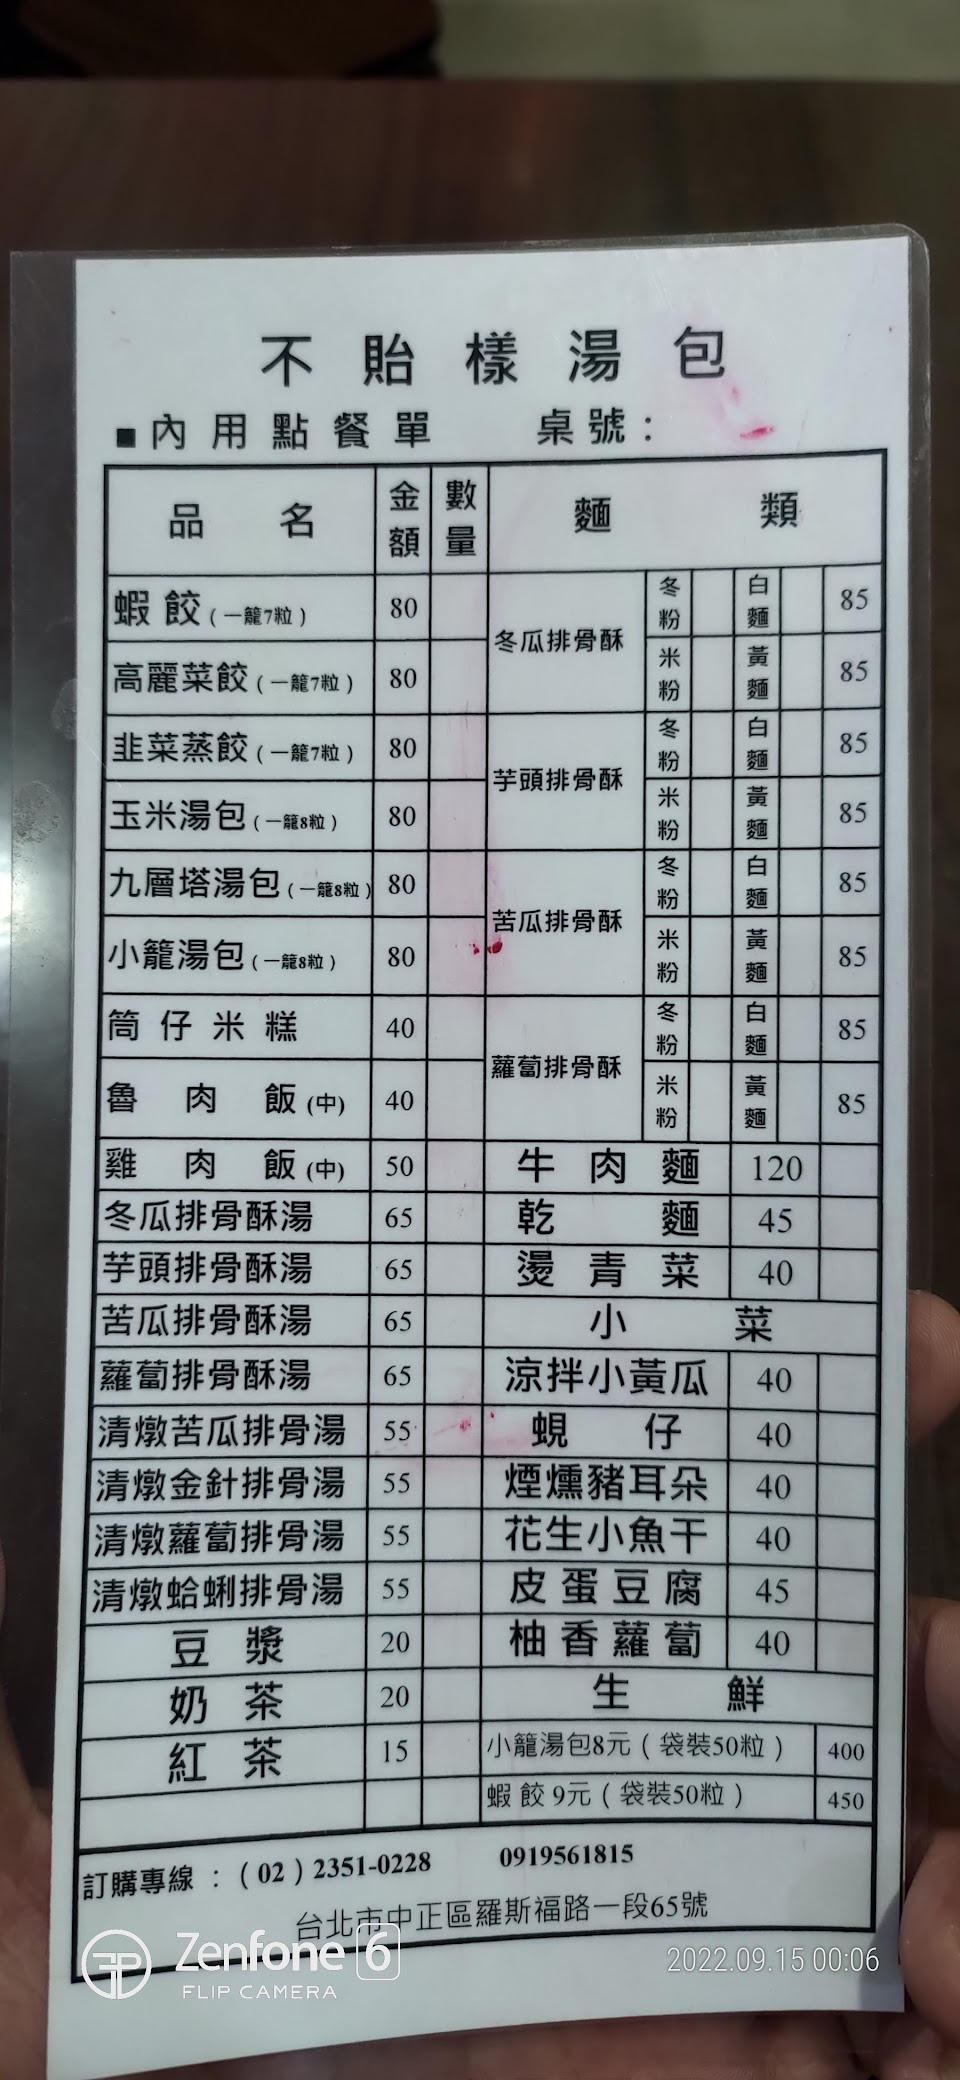 不貽樣湯包
■內用點餐單 桌號：
品名 金額 數量 麵類
蝦餃(一籠7粒) 80
高麗菜餃(一籠7粒) 80
韭菜蒸餃(一籠7粒) 80
玉米湯包(一籠8粒) 80
九層塔湯包(一籠8粒) 80
小籠湯包(一籠8粒) 80
筒仔米糕 40
魯肉飯(中) 40
雞肉飯(中) 50
冬瓜排骨酥湯 65
芋頭排骨酥湯 65
苦瓜排骨酥湯 65
蘿蔔排骨酥湯 65
清燉苦瓜排骨湯 55
清燉金針排骨湯 55
清燉蘿蔔排骨湯 55
清燉蛤蜊排骨湯 55
豆漿 20
奶茶 20
紅茶 15
冬瓜排骨酥 冬粉 白麵 85
米粉 黃麵 85
芋頭排骨酥 冬粉 白麵 85
米粉 黃麵 85
苦瓜排骨酥 冬粉 白麵 85
米粉 黃麵 85
蘿蔔排骨酥 冬粉 白麵 85
米粉 黃麵 85
牛肉麵 120
乾麵 45
燙青菜 40
小菜
涼拌小黃瓜 40
蜆仔 40
煙燻豬耳朵 40
花生小魚干 40
皮蛋豆腐 45
柚香蘿蔔 40
生鮮
小籠湯包8元(袋裝50粒) 400
蝦餃9元(袋裝50粒) 450
訂購專線：(02)2351-0228 0919561815
台北市中正區羅斯福路一段65號
Zenfone 6
FLIP CAMERA
2022.09.15 00:06